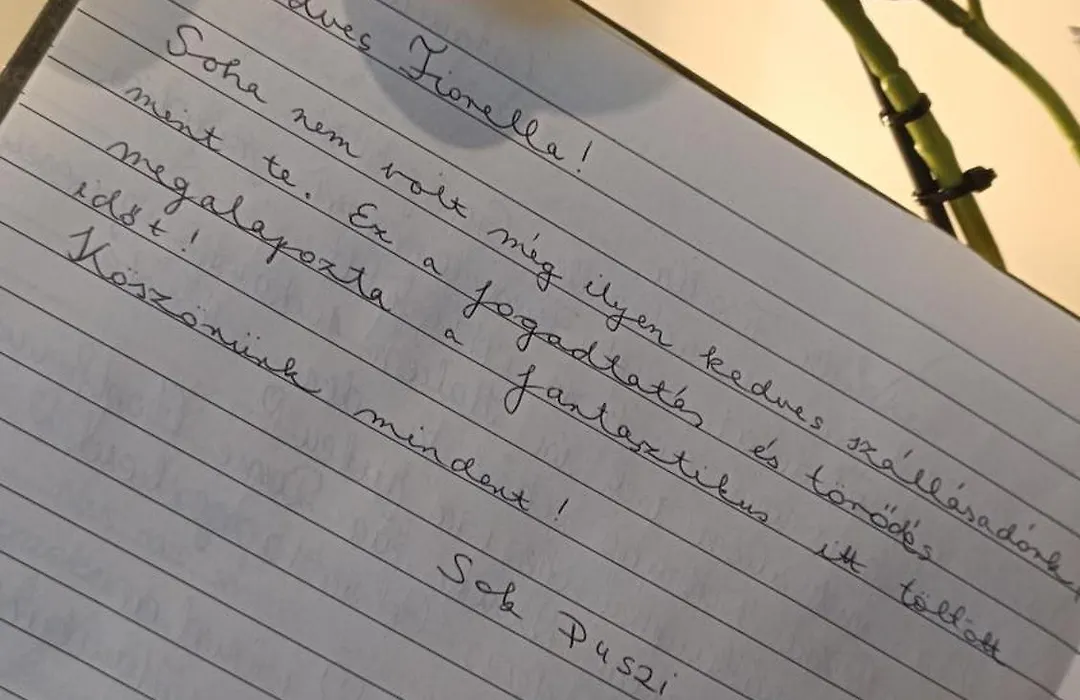 dves Fiorella!
Soha nem volt még ilyen kedves szállásadónk,
mint te. Ez a fogadtatás és törődés
megalapozta a fantasztikus itt töltött
időt!
Köszönünk mindent!
Sok Puszi